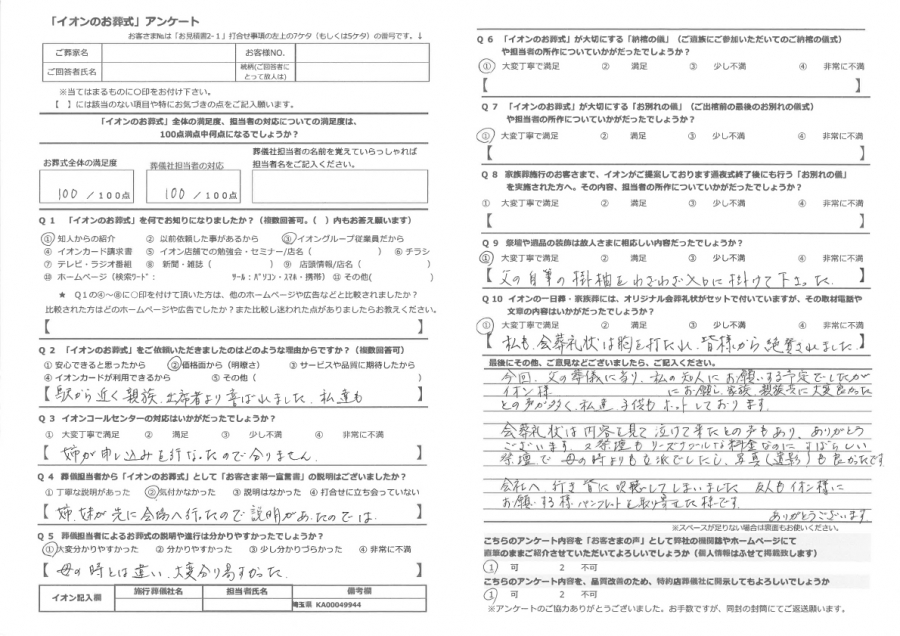 「イオンのお葬式」アンケート
お客さま№は「お見積書2-1」打合せ事項の左上の7ケタ（もしくは5ケタ）の番号です。↓
ご葬家名
お客様NO.
ご回答者氏名
続柄(ご回答者に
とって故人は)
※当てはまるものに〇印をお付け下さい。
【　】には該当のない項目や特にお気づきの点をご記入願います。
「イオンのお葬式」全体の満足度、担当者の対応についての満足度は、
100点満点中何点になるでしょうか？
お葬式全体の満足度
葬儀社担当者の対応
葬儀社担当者の名前を覚えていらっしゃれば
担当者名をご記入ください。
100 / 100点
100 / 100点
Q 1　「イオンのお葬式」を何でお知りになりましたか？（複数回答可。（　）内もお答え願います）
① 知人からの紹介　② 以前依頼した事があるから　③ イオングループ従業員だから
④ イオンカード請求書　⑤ イオン店舗での勉強会・セミナー/店名（　）⑥ チラシ
⑦ テレビ・ラジオ番組　⑧ 新聞・雑誌（　）⑨ 店頭情報/店名（　）
⑩ ホームページ（検索ﾜｰﾄﾞ：　ﾂｰﾙ：ﾊﾟｿｺﾝ・ｽﾏﾎ・携帯）⑪ その他(　)
★ Q1の④～⑩に〇印を付けて頂いた方は、他のホームページや広告などと比較されましたか？
比較された方はどのホームページや広告でしたか？また比較し迷われた点がありましたらお教えください。
【　】
Q 2　「イオンのお葬式」をご依頼いただきましたのはどのような理由からですか？（複数回答可）
① 安心できると思ったから　② 価格面から（明瞭さ）　③ サービスや品質に期待したから
④ イオンカードが利用できるから　⑤ その他（　）
【 駅から近く親族、出席者より喜ばれました、私達も 】
Q 3　イオンコールセンターの対応はいかがだったでしょうか？
① 大変丁寧で満足　② 満足　③ 少し不満　④ 非常に不満
【 姉が申し込みを行なったので分りません。 】
Q 4　葬儀担当者から「イオンのお葬式」として「お客さま第一宣誓書」の説明はございましたか？
① 丁寧な説明があった　② 気付かなかった　③ 説明はなかった　④ 打合せに立ち会っていない
【 姉、妹が先に会場へ行ったので説明があったのでは 】
Q 5　葬儀担当者によるお葬式の説明や進行は分かりやすかったでしょうか？
① 大変分かりやすかった　② 分かりやすかった　③ 少し分かりづらかった　④ 非常に不満
【 母の時とは違い、大変分り易すかった、 】
イオン記入欄
施行葬儀社名
担当者氏名
備考欄
埼玉県 KA00049944
Q 6　「イオンのお葬式」が大切にする「納棺の儀」（ご遺族にご参加いただいてのご納棺の儀式）
や担当者の所作についていかがだったでしょうか？
① 大変丁寧で満足　② 満足　③ 少し不満　④ 非常に不満
【　】
Q 7　「イオンのお葬式」が大切にする「お別れの儀」（ご出棺前の最後のお別れの儀式）
や担当者の所作についていかがだったでしょうか？
① 大変丁寧で満足　② 満足　③ 少し不満　④ 非常に不満
【　】
Q 8　家族葬施行のお客さまで、イオンがご提案しております通夜式終了後にも行う「お別れの儀」
を実施された方へ。その内容、担当者の所作についていかがだったでしょうか？
① 大変丁寧で満足　② 満足　③ 少し不満　④ 非常に不満
【　】
Q 9　祭壇や遺品の装飾は故人さまに相応しい内容だったでしょうか？
① 大変丁寧で満足　② 満足　③ 少し不満　④ 非常に不満
【 父の自筆の掛軸をわざわざ入口に掛けて下さった、 】
Q 10　イオンの一日葬・家族葬には、オリジナル会葬礼状がセットで付いていますが、その取材電話や
文章の内容はいかがだったでしょうか？
① 大変丁寧で満足　② 満足　③ 少し不満　④ 非常に不満
【 私も、会葬礼状は胸を打たれ、皆様から絶賛されました。】
最後にその他、ご意見などございましたら、ご記入ください。
今回、父の葬儀に当り、私の知人にお願いする予定でしたが
イオン様　にお願し、家族、親族共に大変良かった
との声が多く、私達子供もホットしております。
会葬礼状は内容を見て泣けて来たとの声もあり、ありがとう
ございます。又祭壇もリーズナブルな料金なのにすばらしい
祭壇で母の時よりも立派でしたし、写真（遺影）も良かったです
会社へ行き皆に吹聴してしまいました　友人もイオン様に
お願いする様、パンフレットを取り寄せた様です。
ありがとうございます
※スペースが足りない場合は裏面もお使いください。
こちらのアンケート内容を「お客さまの声」として弊社の機関誌やホームページにて
直筆のままご紹介させていただいてよろしいでしょうか（個人情報はふせて掲載致します）
1 可　2 不可
こちらのアンケート内容を、品質改善のため、特約店葬儀社に開示してもよろしいでしょうか
1 可　2 不可
※アンケートのご協力ありがとうございました。お手数ですが、同封の封筒にてご返送願います。